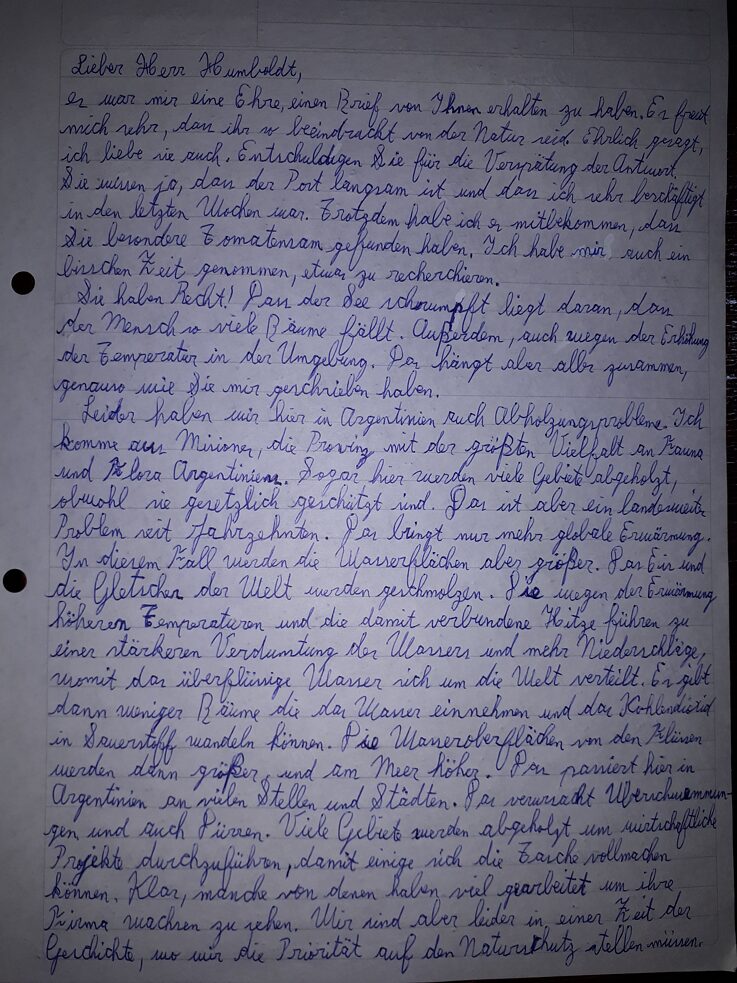 Lieber Herr Humboldt,
es war mir eine Ehre, einen Brief von Ihnen erhalten zu haben. Es freut
mich sehr, dass ihr so beeindrackt von der Natur seid. Ehrlich gesagt,
ich liebe sie auch. Entschuldigen Sie für die Verspätung der Antwort.
Sie wissen ja, dass der Post langsam ist und dass ich sehr beschäftigt
in den letzten Wochen war. Trotzdem habe ich es mitbekommen, dass
Sie besondere Tomatensam gefunden haben. Ich habe mir auch ein
bisschen Zeit genommen, etwas zu recherchieren.
Sie haben Recht! Dass der See schrumpft liegt daran, dass
der Mensch so viele Bäume fällt. Außerdem, auch wegen der Erhöhung
der Temperatur in der Umgebung. Das hängt aber alles zusammen,
genauso wie Sie mir geschrieben haben.
Leider haben wir hier in Argentinien auch Abholzungsprobleme. Ich
komme aus Misiones, die Provinz mit der größten Vielfalt an Fauna
und Flora Argentiniens. Sogar hier werden viele Gebiete abgeholzt,
obwohl sie gesetzlich geschützt sind. Das ist aber ein landesweites
Problem seit Jahrzehnten. Das bringt nur mehr globale Erwärmung.
In diesem Fall werden die Wasserflächen aber größer. Das Eis und
die Gletscher der Welt werden geschmolzen. Die wegen der Erwärmung
höheren Temperaturen und die damit verbundene Hitze führen zu
einer stärkeren Verdunstung des Wassers und mehr Niederschläge,
womit das überflüssige Wasser sich um die Welt verteilt. Es gibt
dann weniger Bäume die das Wasser einnehmen und das Kohlendioxid
in Sauerstoff wandeln können. Die Wasseroberflächen von den Flüssen
werden dann größer, und am Meer höher. Das passiert hier in
Argentinien an vielen Stellen und Städten. Das verursacht Überschwemmun-
gen und auch Dürren. Viele Gebiete werden abgeholzt um wirtschaftliche
Projekte durchzuführen, damit einige sich die Tasche vollmachen
können. Klar, manche von denen haben viel gearbeitet um ihre
Firma wachsen zu sehen. Wir sind aber leider in einer Zeit der
Geschichte, wo wir die Priorität auf den Naturschutz stellen müssen.